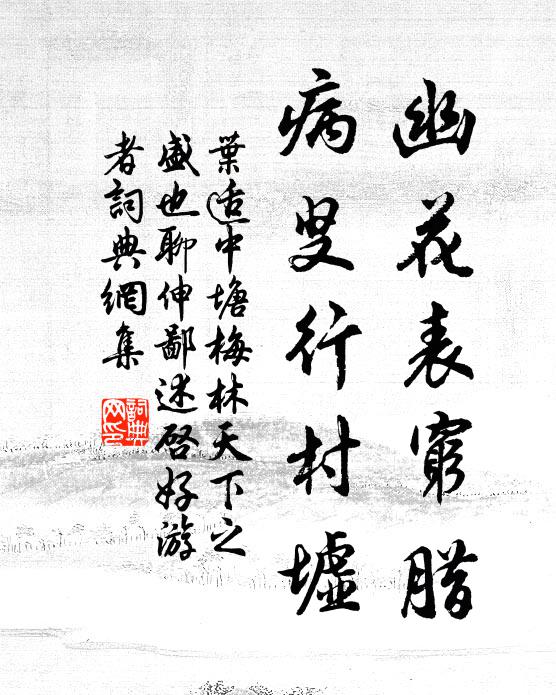 幽花表窮臘
病叟行村墟
葉适中塘梅林天下之
盛也聊伸鄙述啓好游
者詞典網集
詞典
网印